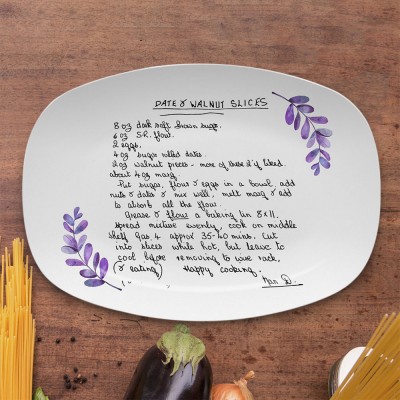 DATE & WALNUT SLICES
8 oz dark soft brown sugar.
6 oz S.R. flour.
2 eggs.
4 oz sugar rolled dates.
2 oz walnut pieces - more of these 2 if liked.
about 4 oz marg.
Put sugar, flour & eggs in a bowl, add
nuts & dates & mix well, melt marg & add
to absorb all the flour.
Grease & flour a baking tin 8 x 11,
spread mixture evenly, cook on middle
shelf Gas 4 approx 35-40 mins. Cut
into slices while hot, but leave to
cool before removing to wire rack,
(& eating) Happy cooking.
Nan D.